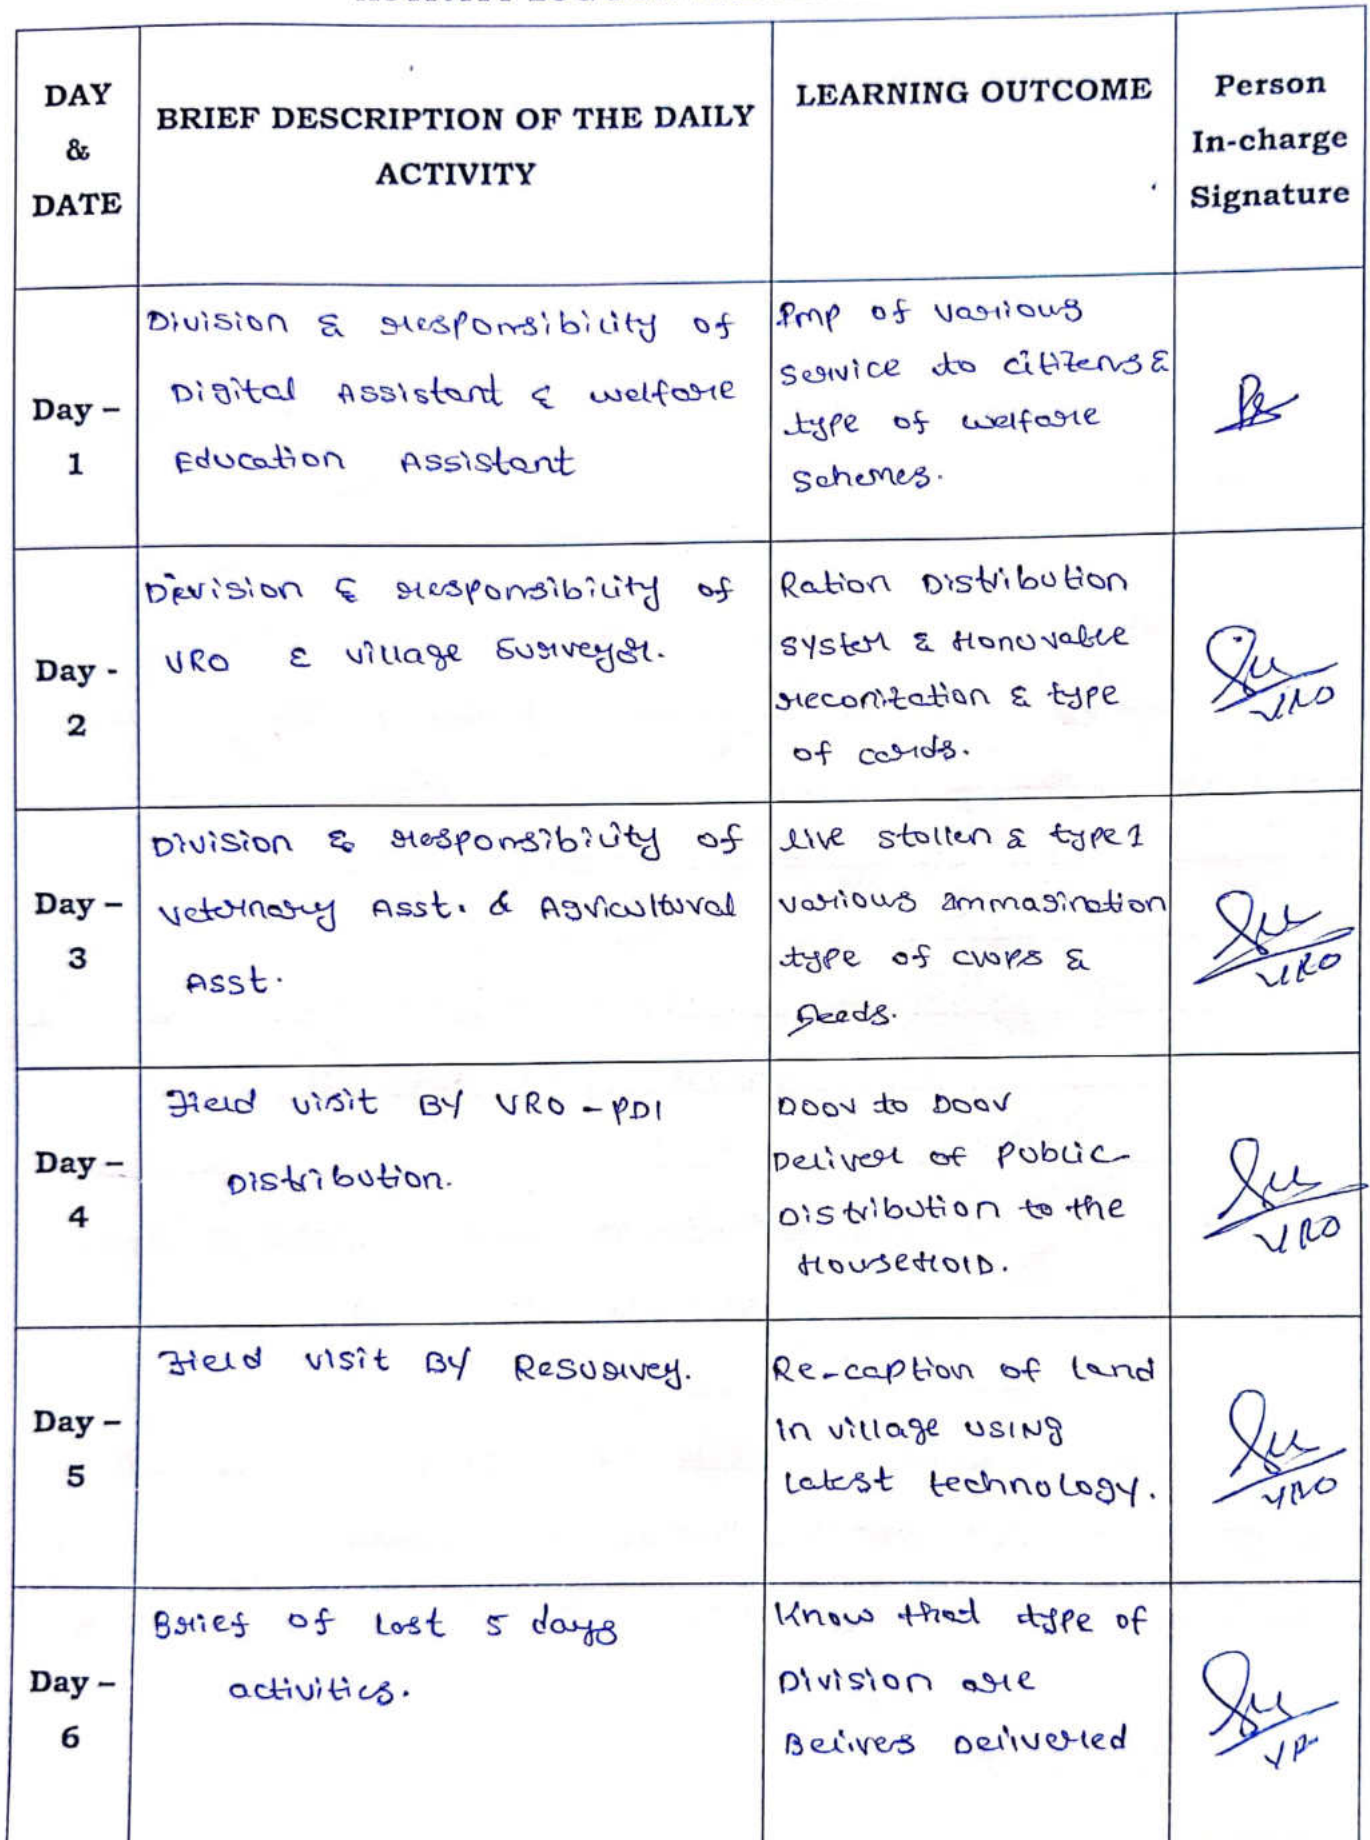 DAY & DATE
BRIEF DESCRIPTION OF THE DAILY
ACTIVITY
LEARNING OUTCOME
Person
In-charge
Signature
Day –
1
Division & responsibility of
Digital Assistant & welfare
Education Assistant
Pmp of various
service to citizens &
type of welfare
schemes.
Day -
2
Devision & responsibility of
VRO & village Surveyor.
Ration Distribution
system & Honuvable
reconitation & type
of cards.
VRO
Day –
3
Division & responsibility of
veternary Asst. & Agricultural
Asst.
live stollen & type 1
various ammagination
type of crops &
seeds.
VRO
Day –
4
Field visit BY VRO - PDI
Distribution.
Door to Door
Deliver of Public
Distribution to the
HouseHolD.
VRO
Day –
5
Field visit BY Resurvey.
Re-caption of land
in village USING
latest technology.
VRO
Day –
6
Brief of last 5 days
activities.
Know that type of
Division are
Belives Delivered